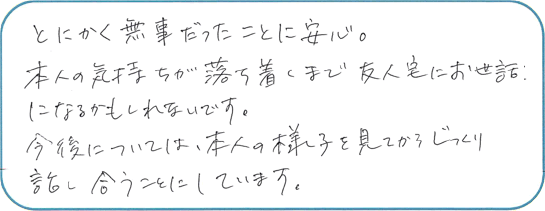 とにかく無事だったことに安心。
本人の気持ちが落ち着くまで友人宅にお世話
になるかもしれないです。
今後については、本人の様子を見てからじっくり
話し合うことにしています。